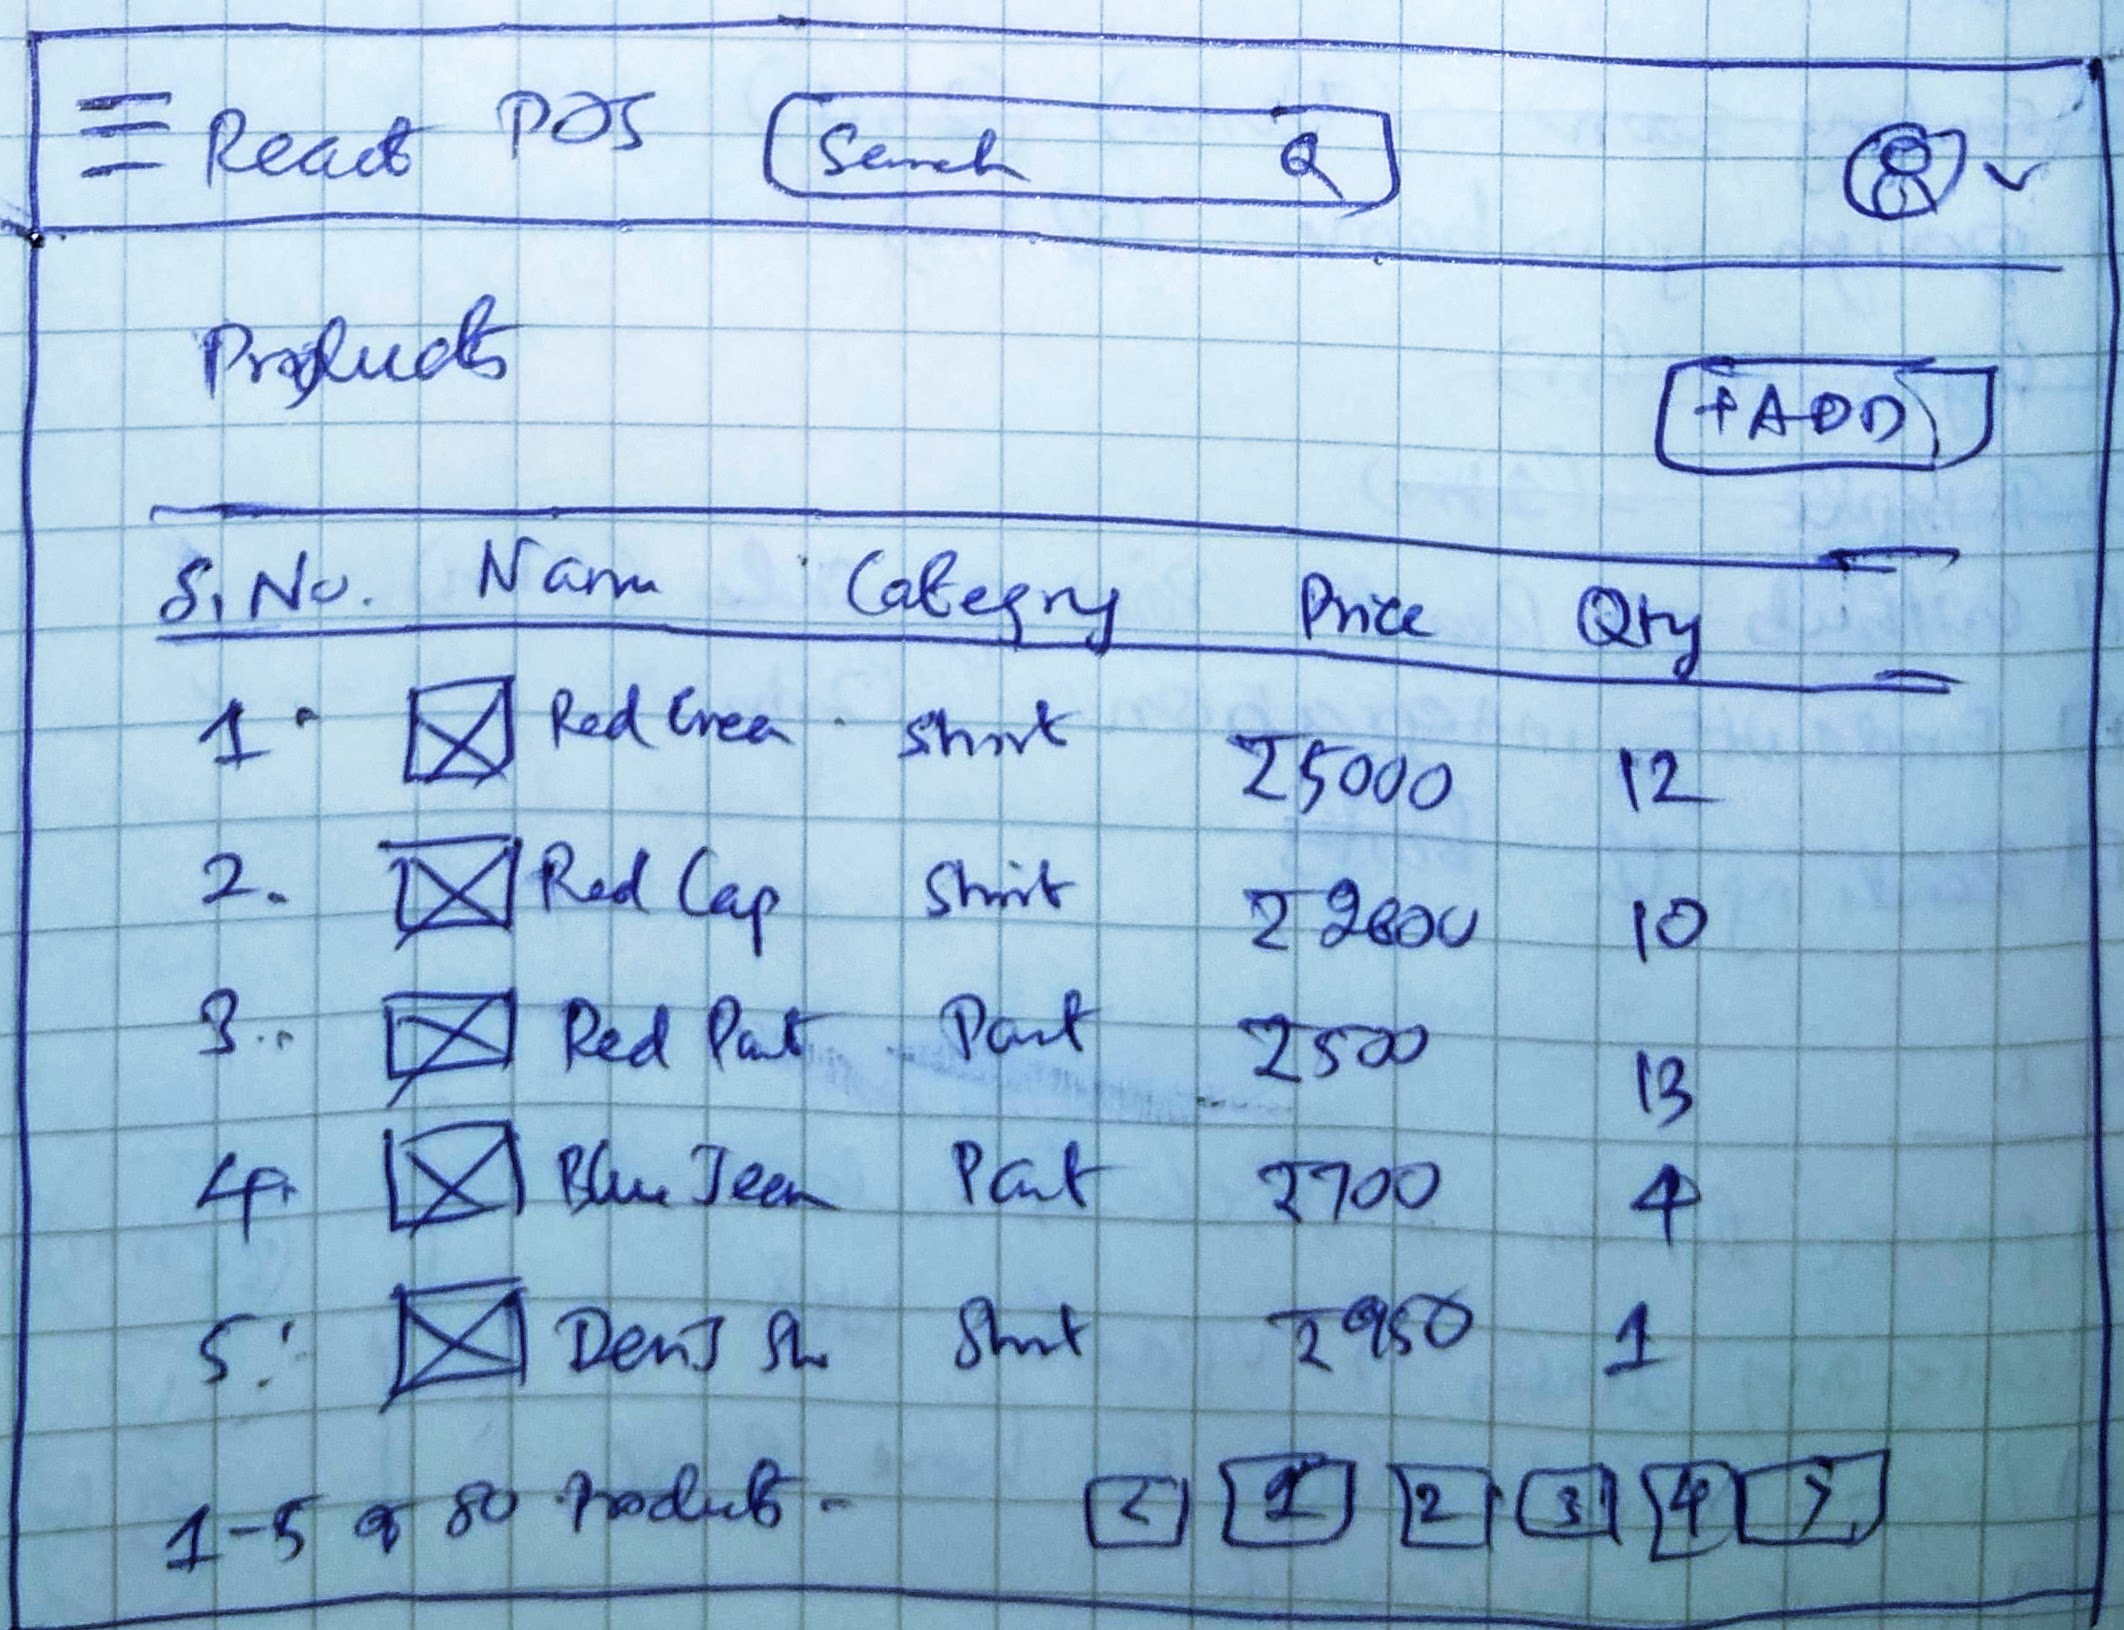 React POS Search
Products
+ADD
S.No. Name Category Price Qty
1. Red Shirt ₹5000 12
2. Red Cap Shirt 10
3. Red Pant Pant ₹500 13
4. Blue Jean Pant ₹700 4
5. Shirt ₹950 1
1-5 of 80 Products < 1 2 3 4 >